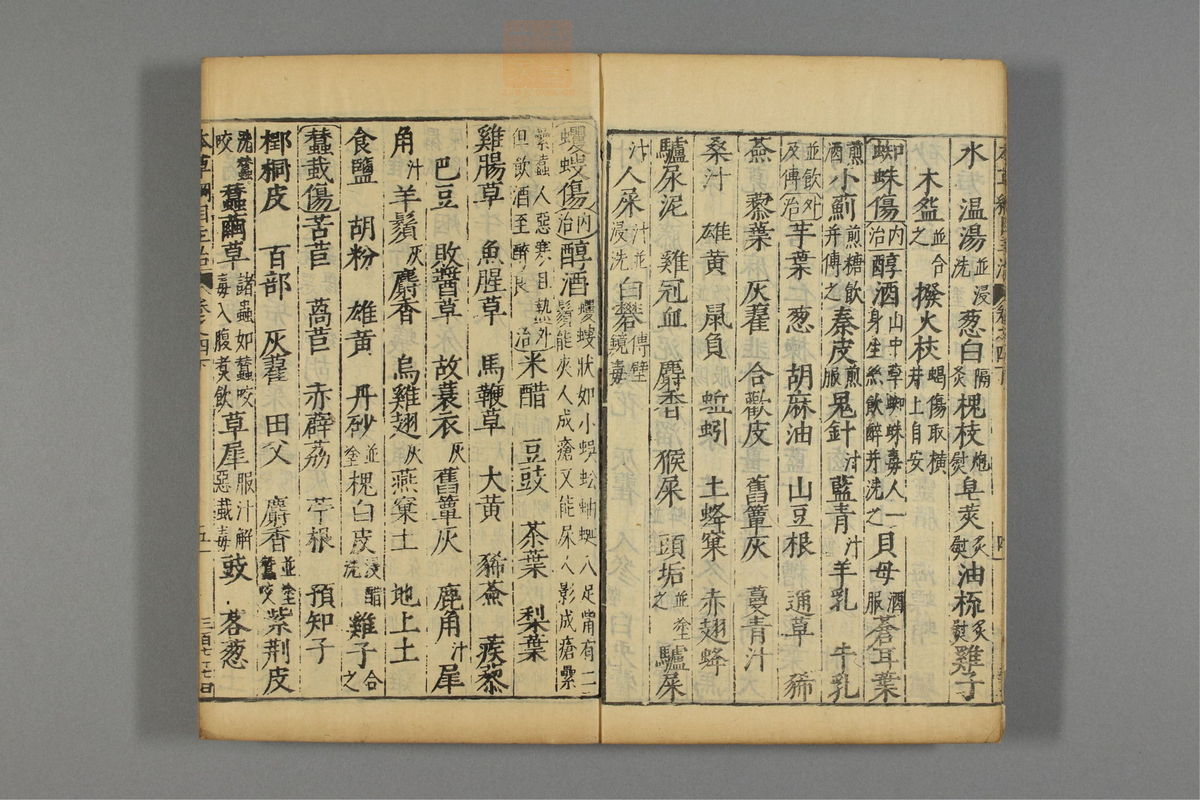 水 温湯並浸洗 葱白隔灸 槐枝炮熨 皂莢炙熨 油梳炙熨 雞子
木盌並合之 撥火杖蝎傷取横井上自安
蜘蛛傷内治醇酒山中草蜘蛛毒人一身生絲飲醉并洗之 貝母酒服 蒼耳葉
煎酒 小薊煎糖飲并傅之 秦皮煎服 鬼針汁 藍青汁 羊乳 牛乳
並飲及傅外治芋葉 葱 胡麻油 山豆根 通草 豨
薟 藜葉 灰藋 合歡皮 舊簟灰 蔓青汁
桑汁 雄黄 鼠負 蚯蚓 土蜂窠 赤翅蜂
驢尿泥 雞冠血 麝香 猴屎 頭垢並塗之 驢屎
汁人屎汁並浸洗 白礬傅壁鏡毒
蠼螋傷内治醇酒蠼螋狀如小蜈蚣蚰蜒八足觜有二鬚能夾人成瘡又能尿人影成瘡纍
纍蠚人惡寒且熱但飲酒至醉良外治米醋 豆豉 茶葉 梨葉
雞腸草 魚腥草 馬鞭草 大黄 豨薟 蒺藜
巴豆 敗醬草 故蓑衣灰 舊簟灰 鹿角汁 犀
角汁 羊鬚灰 麝香 烏雞翅灰 燕窠土 地上土
食鹽 胡粉 雄黄 丹砂並塗 槐白皮浸醋洗 雞子合之
蠶蛓傷苦苣 萵苣 赤薜荔 苧根 預知子
椰桐皮 百部 灰藋 田父 麝香並塗蠶咬 紫荆皮
洗蠶咬 蠶繭草諸蟲如蠶咬毒入腹煮飲 草犀服汁解惡蛓毒 豉 茖葱
本草綱目主治 卷之四下